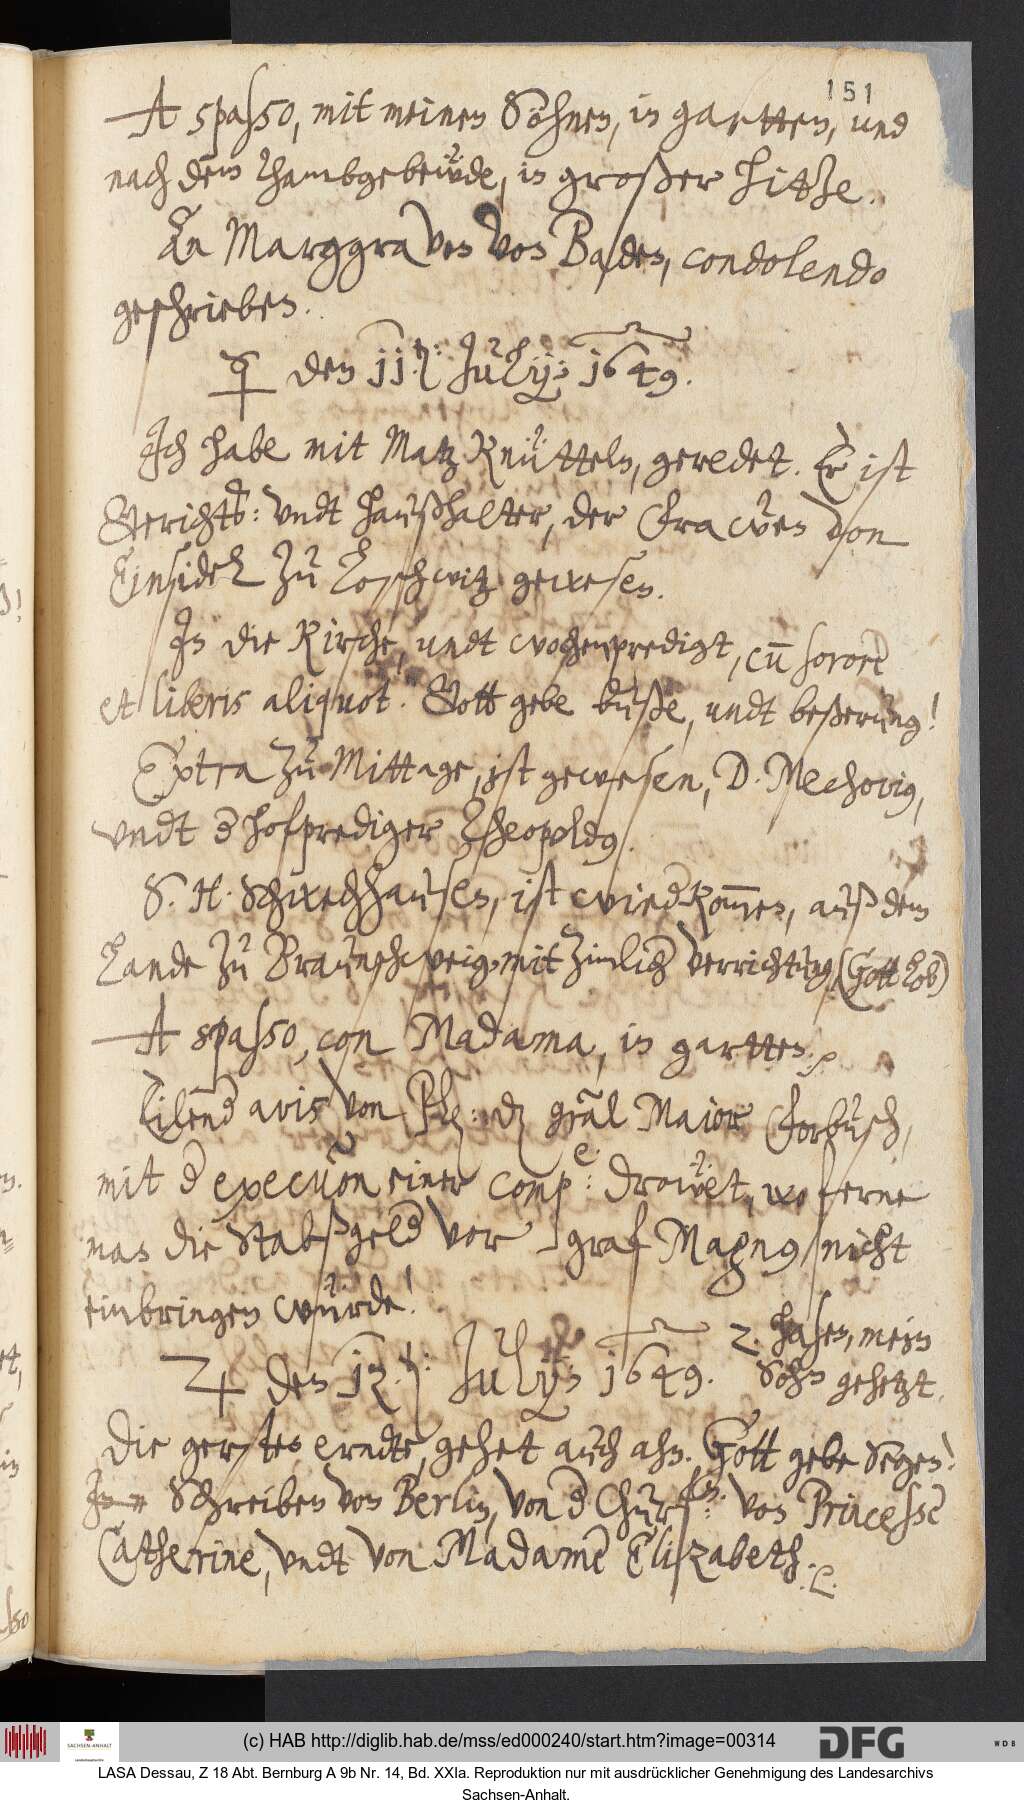 151
A spasso, mit meinen Söhnen, in gartten, und
nach dem Thambgebeüde, in großer hitze.
An Marggraven von Baden, condolendo
geschrieben.
☿ den 11t: Julij: 1649.
Ich habe mit Matz Knütteln, geredet. Er ist
Gerichts: undt haußhalter, der Frawen von
Einsidel zu Loschwitz gewesen.
In die Kirche, undt wochenpredigt, cū sorore
et liberis aliquot. Gott gebe buße, undt beßerung!
Extra zu Mittage, ist gewesen, D. Mechovig,
undt d hofprediger Theopoldg.
S. H. Schwechhausen, ist wiedkom̄en, auß dem
Lande zu Braunschweig, mit zimlich verrichtung, (Gott lob)
A spasso, con Madama, in gartten. p
Eilend avis von gräl Major Forbusch,
mit d execuon einer Comp.e: drowet, wo ferne
man die Stabßgeld vor graf Magng nicht
einbringen würde!
2. hasen, mein
♃ den 12.t: Julij: 1649. Sohn gehetzt.
Die gersten erndte, gehet auch ahn. Gott gebe Segen!
Schreiben von Berlin, von d Churf: von Princesse
Catherine, undt von Madame Elizabeth.
(c) HAB http://diglib.hab.de/mss/ed000240/start.htm?image=00314
SACHSEN-ANHALT
DFG
WDB
LASA Dessau, Z 18 Abt. Bernburg A 9b Nr. 14, Bd. XXIa. Reproduktion nur mit ausdrücklicher Genehmigung des Landesarchivs
Sachsen-Anhalt.